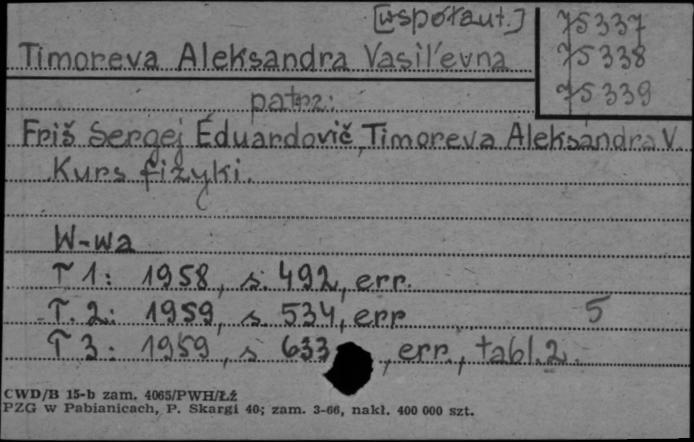 [współaut.]
75337
Timoreva Aleksandra Vasil'evna
75338
75339
patrz:
Friš Sergej Èduardovič, Timoreva Aleksandra V.
Kurs fizyki.
W-wa
T 1: 1958, s. 492, err.
T. 2: 1959, s 534, err
5
T 3: 1959, s 633, err., tabl. 2.
CWD/B 15-b zam. 4065/PWH/Łż
PZG w Pabianicach, P. Skargi 40; zam. 3-66, nakł. 400 000 szt.